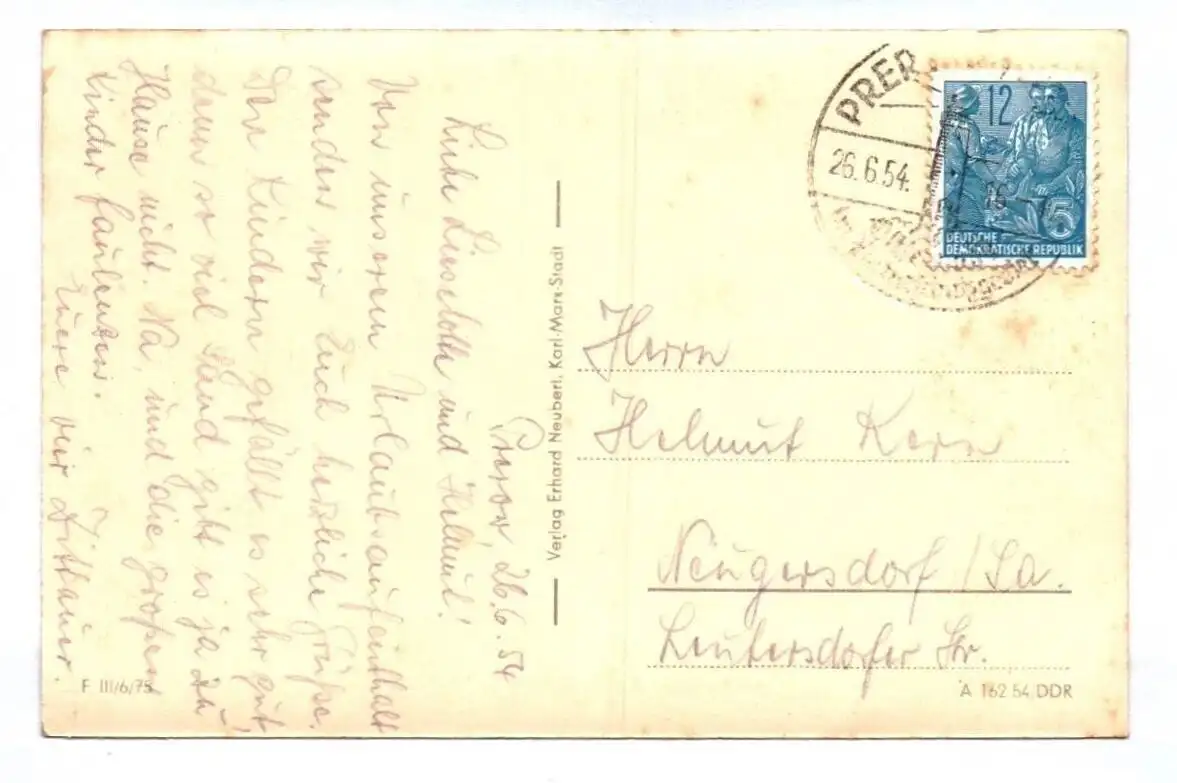 Prerow, 26.6.54
Liebe Lieselotte und Helmut!
Von unserem Urlaubsaufenthalt
senden wir Euch herzliche Grüße.
Den Kindern gefällt es sehr gut,
denn so viel Sand gibt es ja zu
Hause nicht. Na, und die großen
Kinder faulenzen.
Euere vier Zittauer.
F III/6/75
Verlag Erhard Neubert, Karl-Marx-Stadt
PRER
26.6.54
12
5
DEUTSCHE
DEMOKRATISCHE REPUBLIK
Herrn
Helmut Kern
Neugersdorf / Sa.
Leutersdorfer Str.
A 162 54 DDR